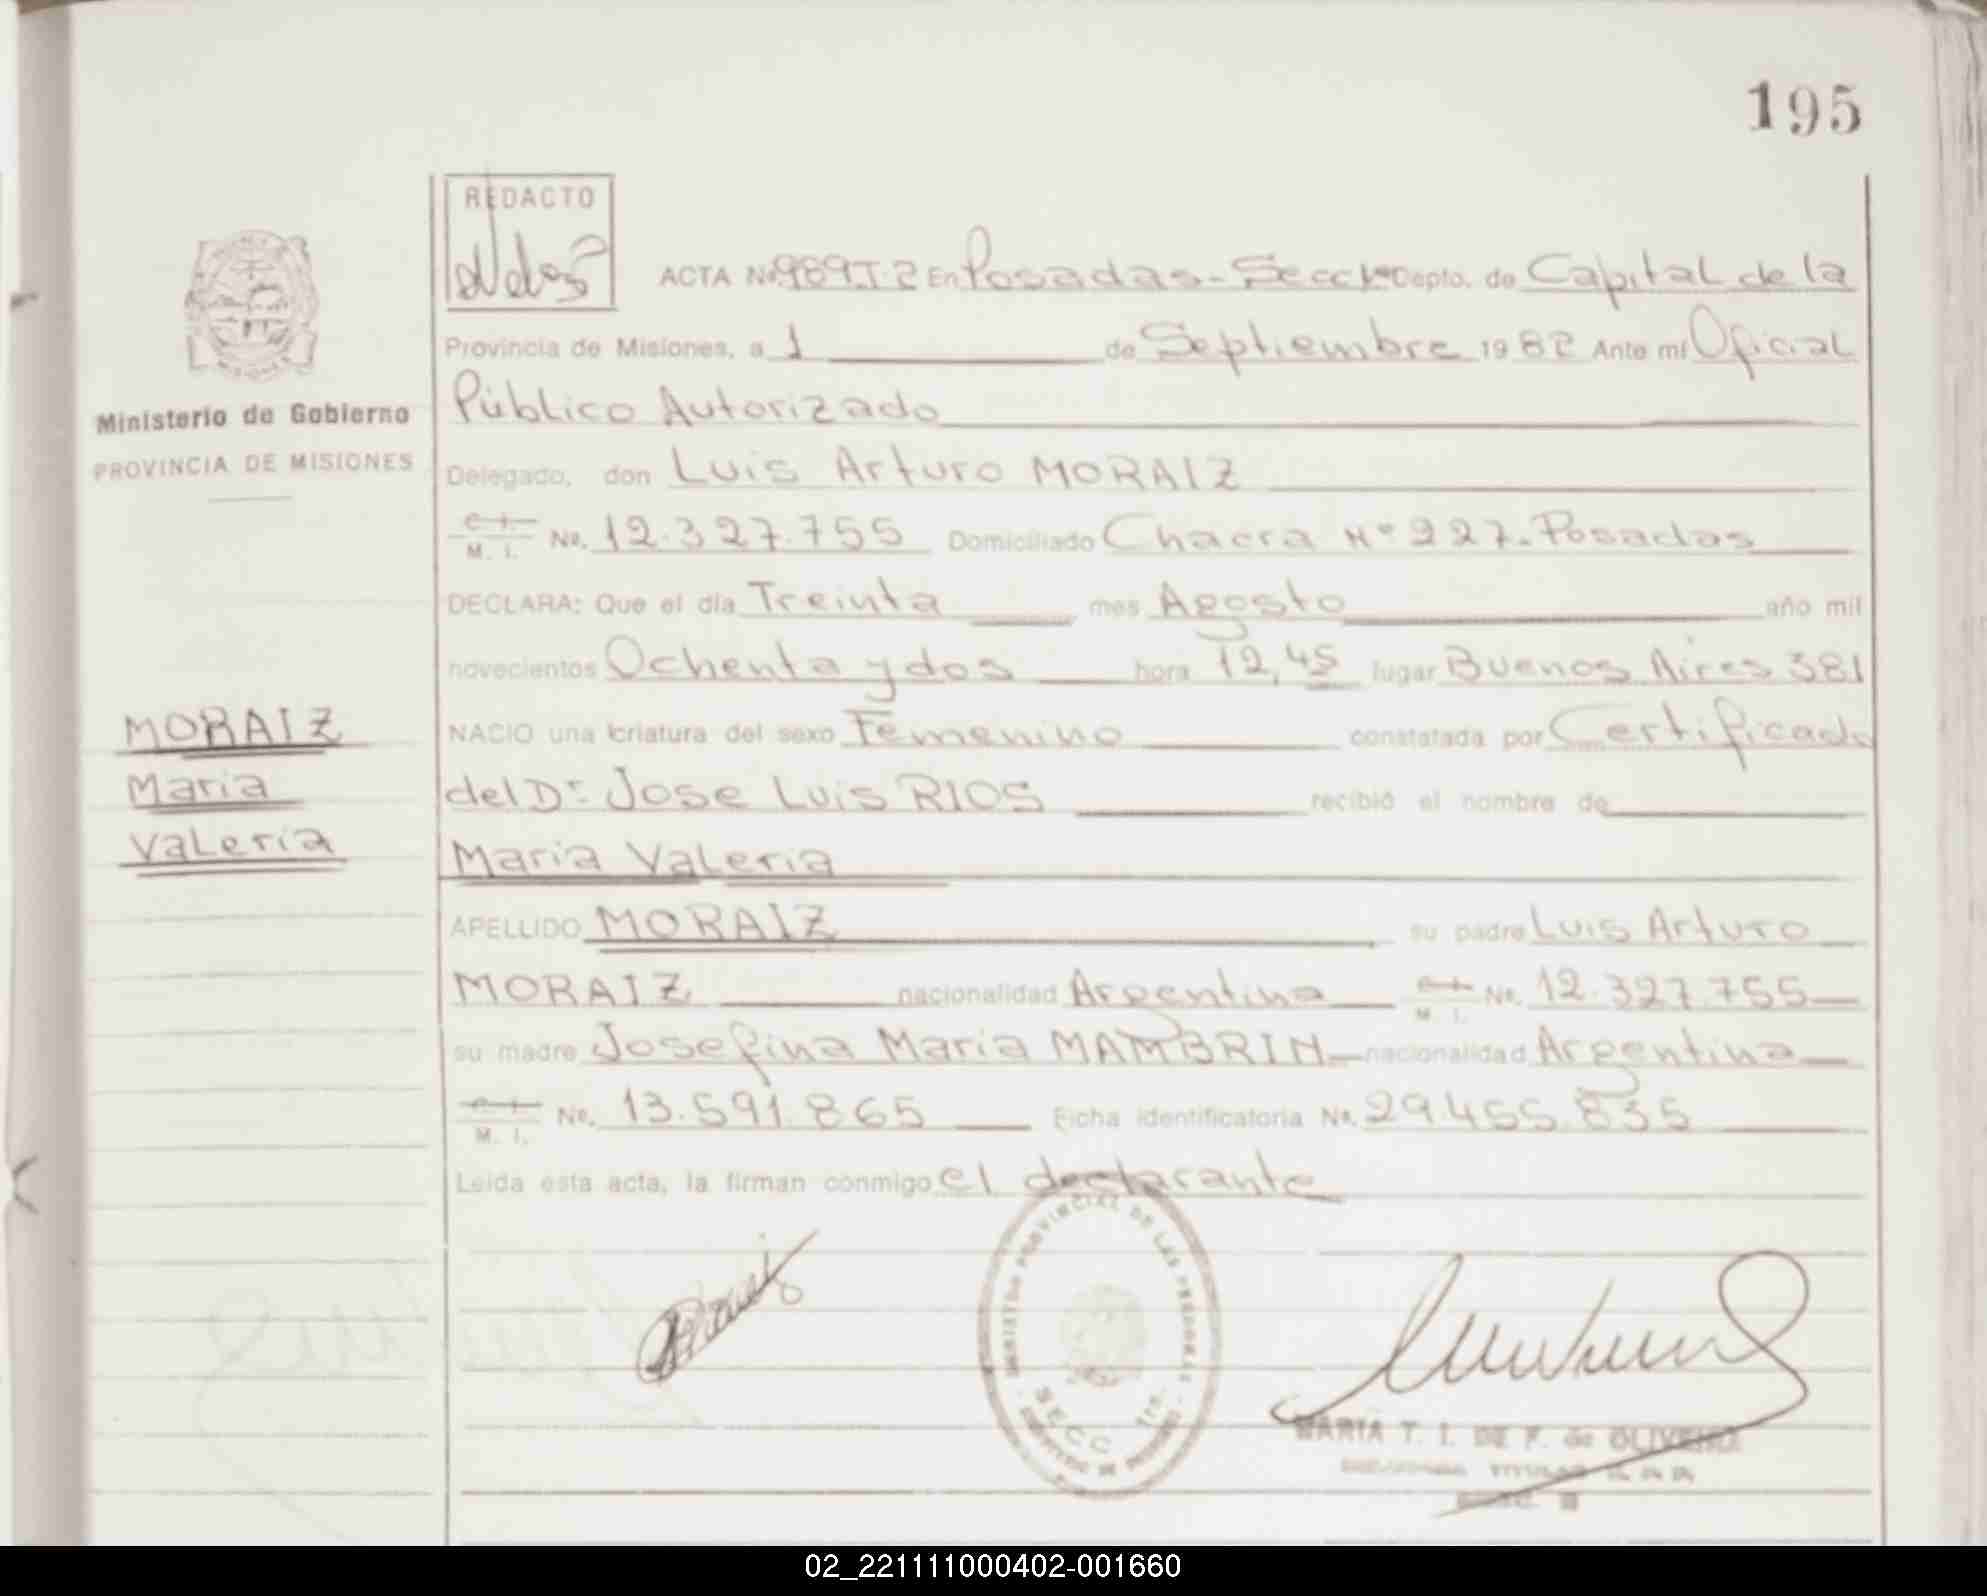 195
REDACTO
ACTA Nº 989 T.2 En Posadas - Secc 1ª Depto. de Capital de la
Provincia de Misiones, a 1 de Septiembre 1982 Ante mí Oficial
Público Autorizado
Delegado, don Luis Arturo MORAIZ
C. I. M. I. No. 12.327.755 Domiciliado Chacra Nº 227. Posadas
DECLARA: Que el día Treinta mes Agosto año mil
novecientos Ochenta y dos hora 12,45 lugar Buenos Aires 381
NACIO una criatura del sexo Femenino constatada por Certificado
del Dr Jose Luis RIOS recibió el nombre de
Maria Valeria
APELLIDO MORAIZ su padre Luis Arturo
MORAIZ nacionalidad Argentina C. I. M. I. No. 12.327.755
su madre Josefina Maria MAMBRIN nacionalidad Argentina
C. I. M. I. No. 13.591.865 Ficha identificatoria No. 29.455.835
Leída esta acta, la firman conmigo el declarante
Ministerio de Gobierno
PROVINCIA DE MISIONES
MORAIZ
Maria
Valeria
REGISTRO PROVINCIAL DE LAS PERSONAS
SECC 1ra.
MARIA T. I. DE F. de OLIVEIRA
02_221111000402-001660